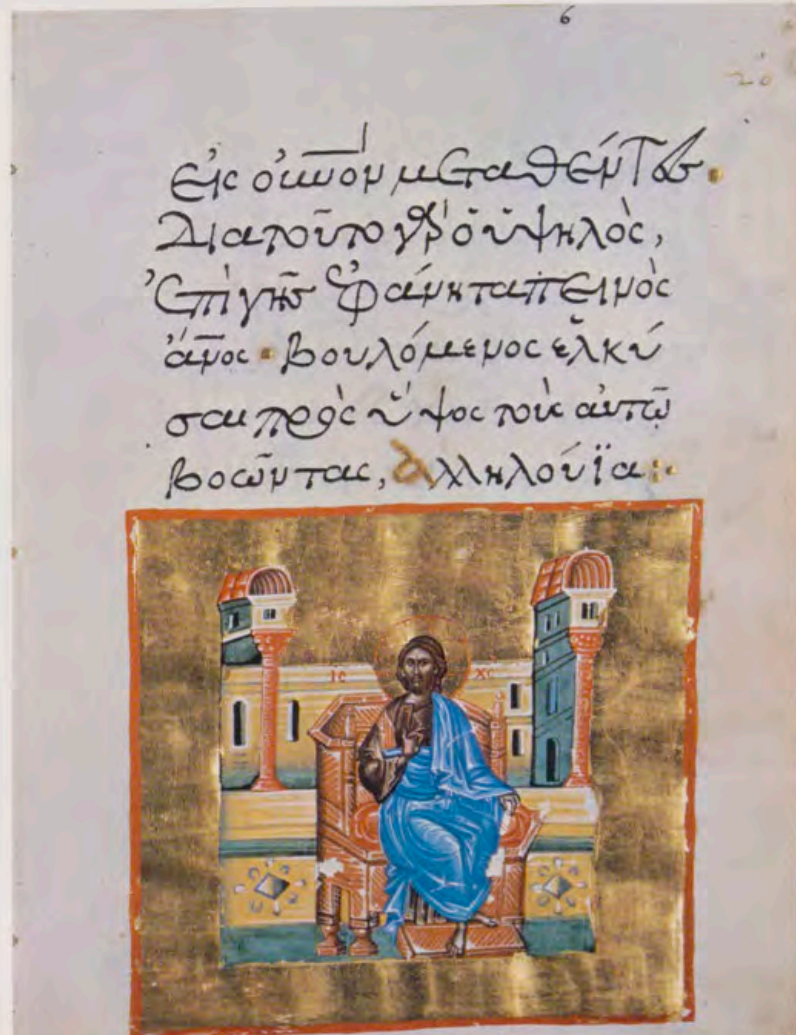 6
20
εἰς οὐνον μεταθέντες.
Διατοῦτο γὰρ ὁ ὑψηλὸς,
ἐπὶ γῆς ἐφάνη ταπεινὸς
ἄνος· βουλόμενος ἑλκύ
σαι πρὸς ὕψος τοὺς αὐτῶ
βοῶντας, ἀλληλούϊα:
IC XC